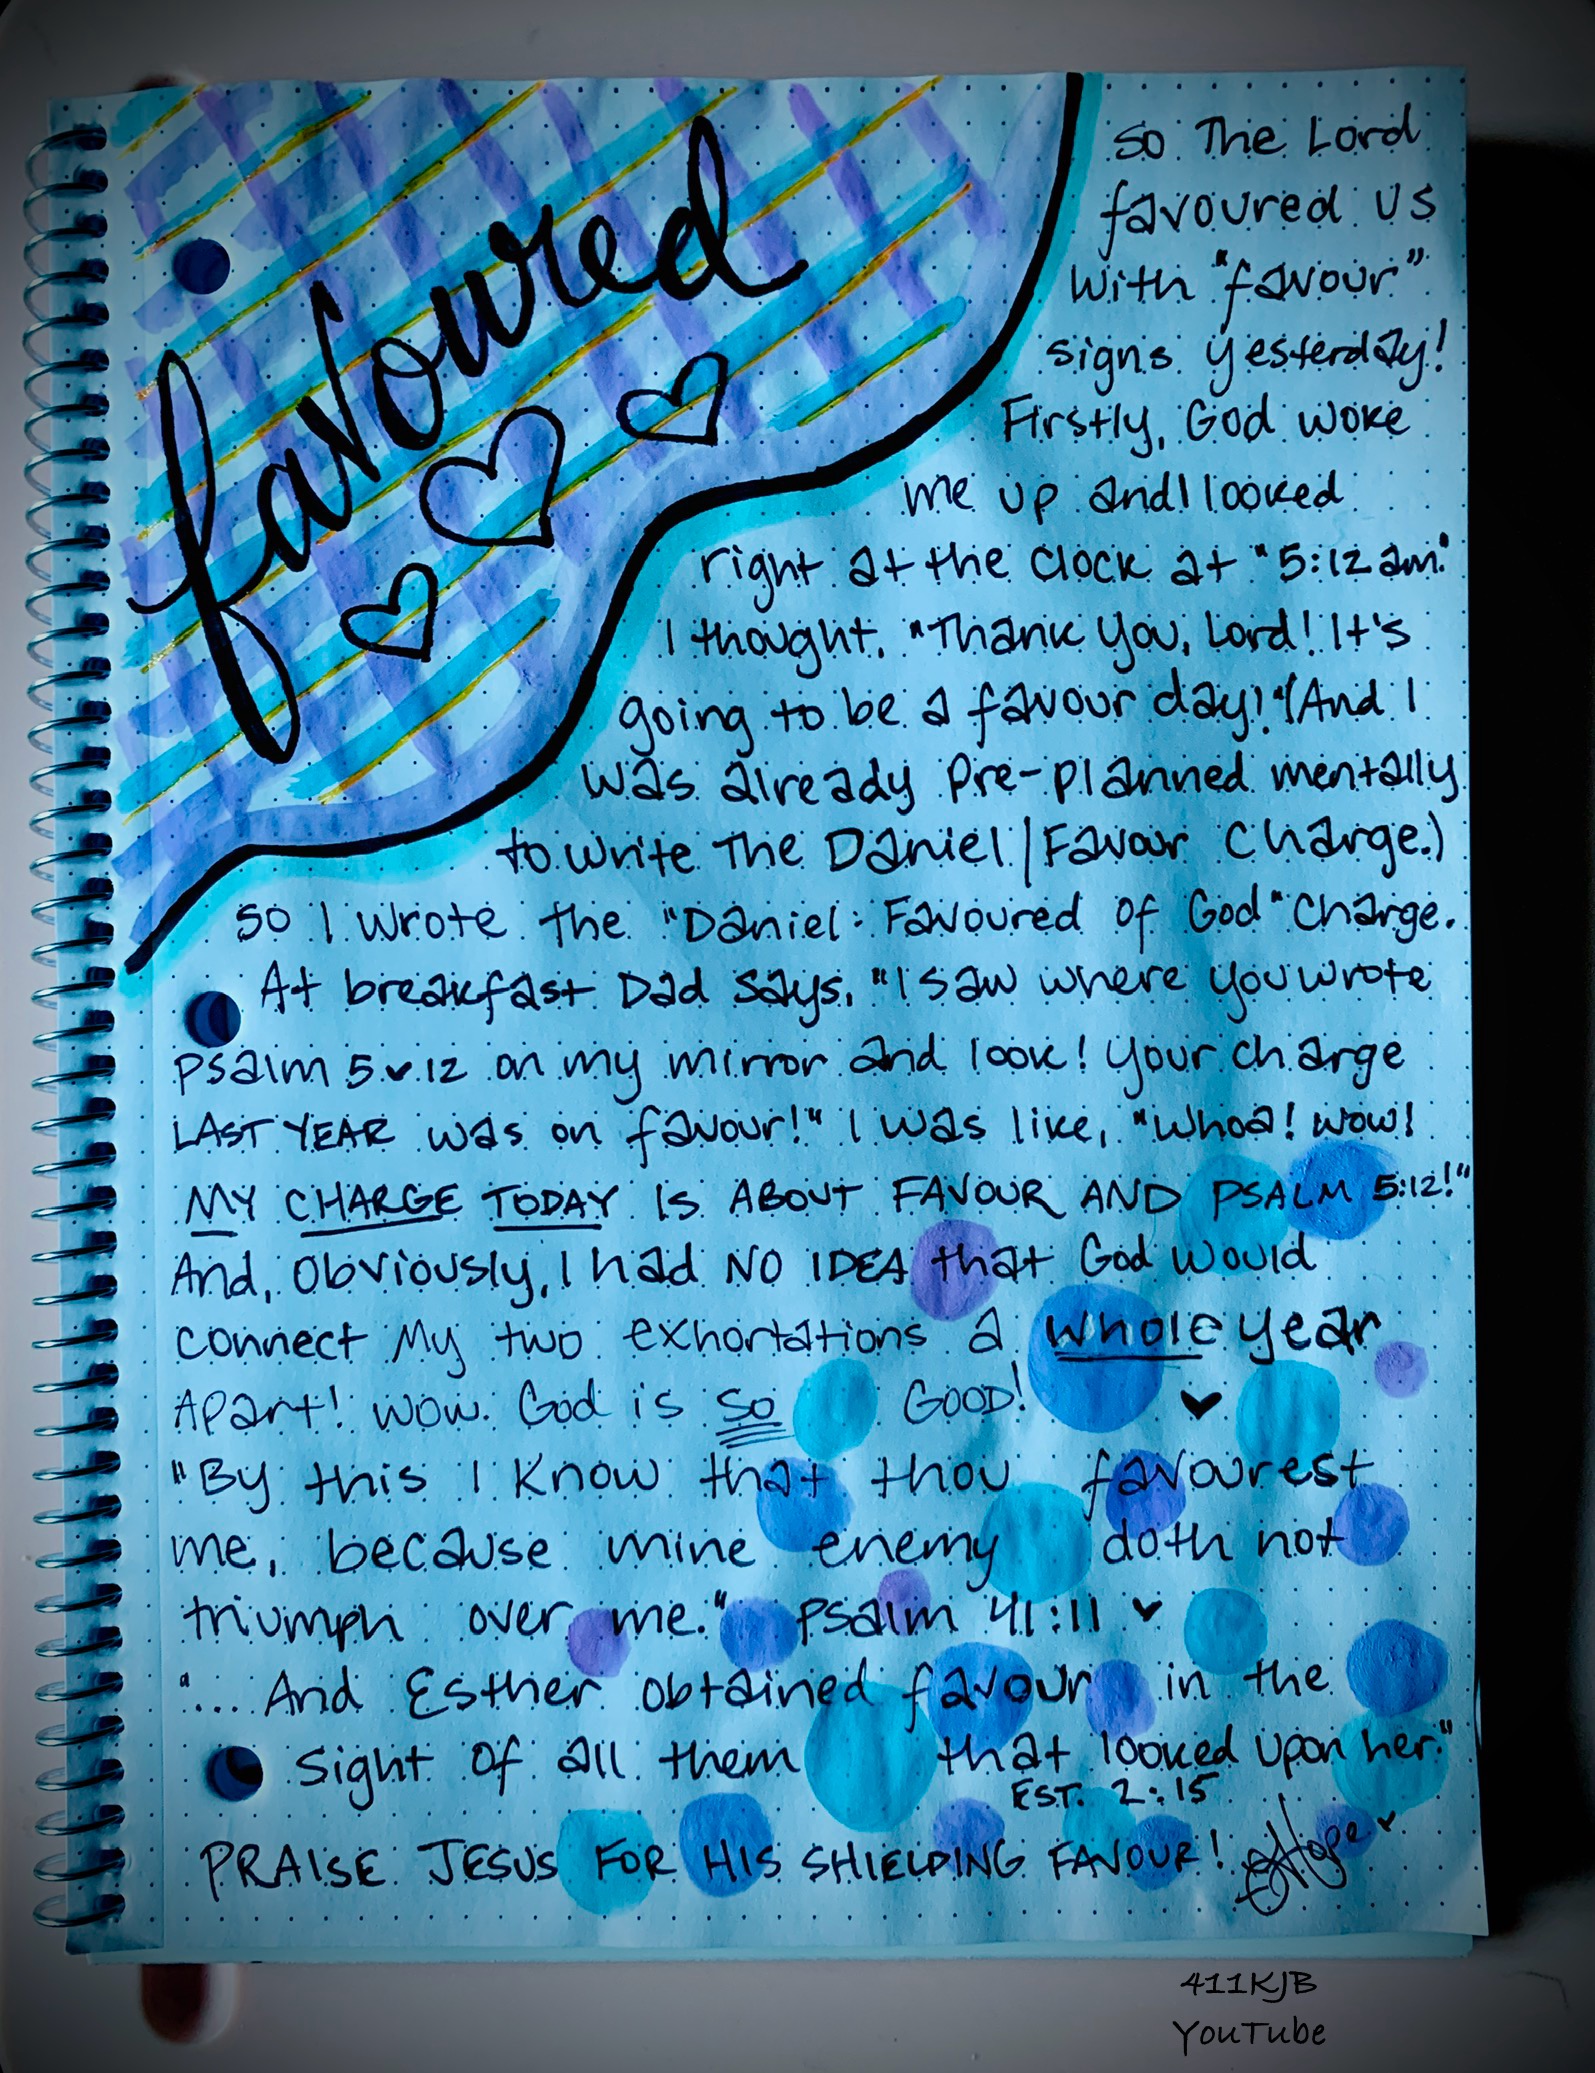 favoured
So The Lord
favoured us
with "favour"
signs yesterday!
Firstly, God woke
me up and I looked
right at the clock at "5:12 am."
I thought, "Thank you, Lord! It's
going to be a favour day!" (And I
was already pre-planned mentally
to write The Daniel/Favour Charge.)
So I wrote the "Daniel: Favoured of God" Charge.
At breakfast Dad says, "I saw where you wrote
Psalm 5♥12 on my mirror and look! Your charge
LAST YEAR was on favour!" I was like, "Whoa! Wow!
MY CHARGE TODAY IS ABOUT FAVOUR AND PSALM 5:12!"
And, obviously, I had NO IDEA that God would
connect My two exhortations a whole year
Apart! Wow. God is so GOOD! ♥
"By this I know that thou favourest
me, because mine enemy doth not
triumph over me." Psalm 41:11 ♥
"... And Esther obtained favour in the
sight of all them that looked upon her."
EST. 2:15
PRAISE JESUS FOR HIS SHIELDING FAVOUR!
Hope ♥
411KJB
YouTube